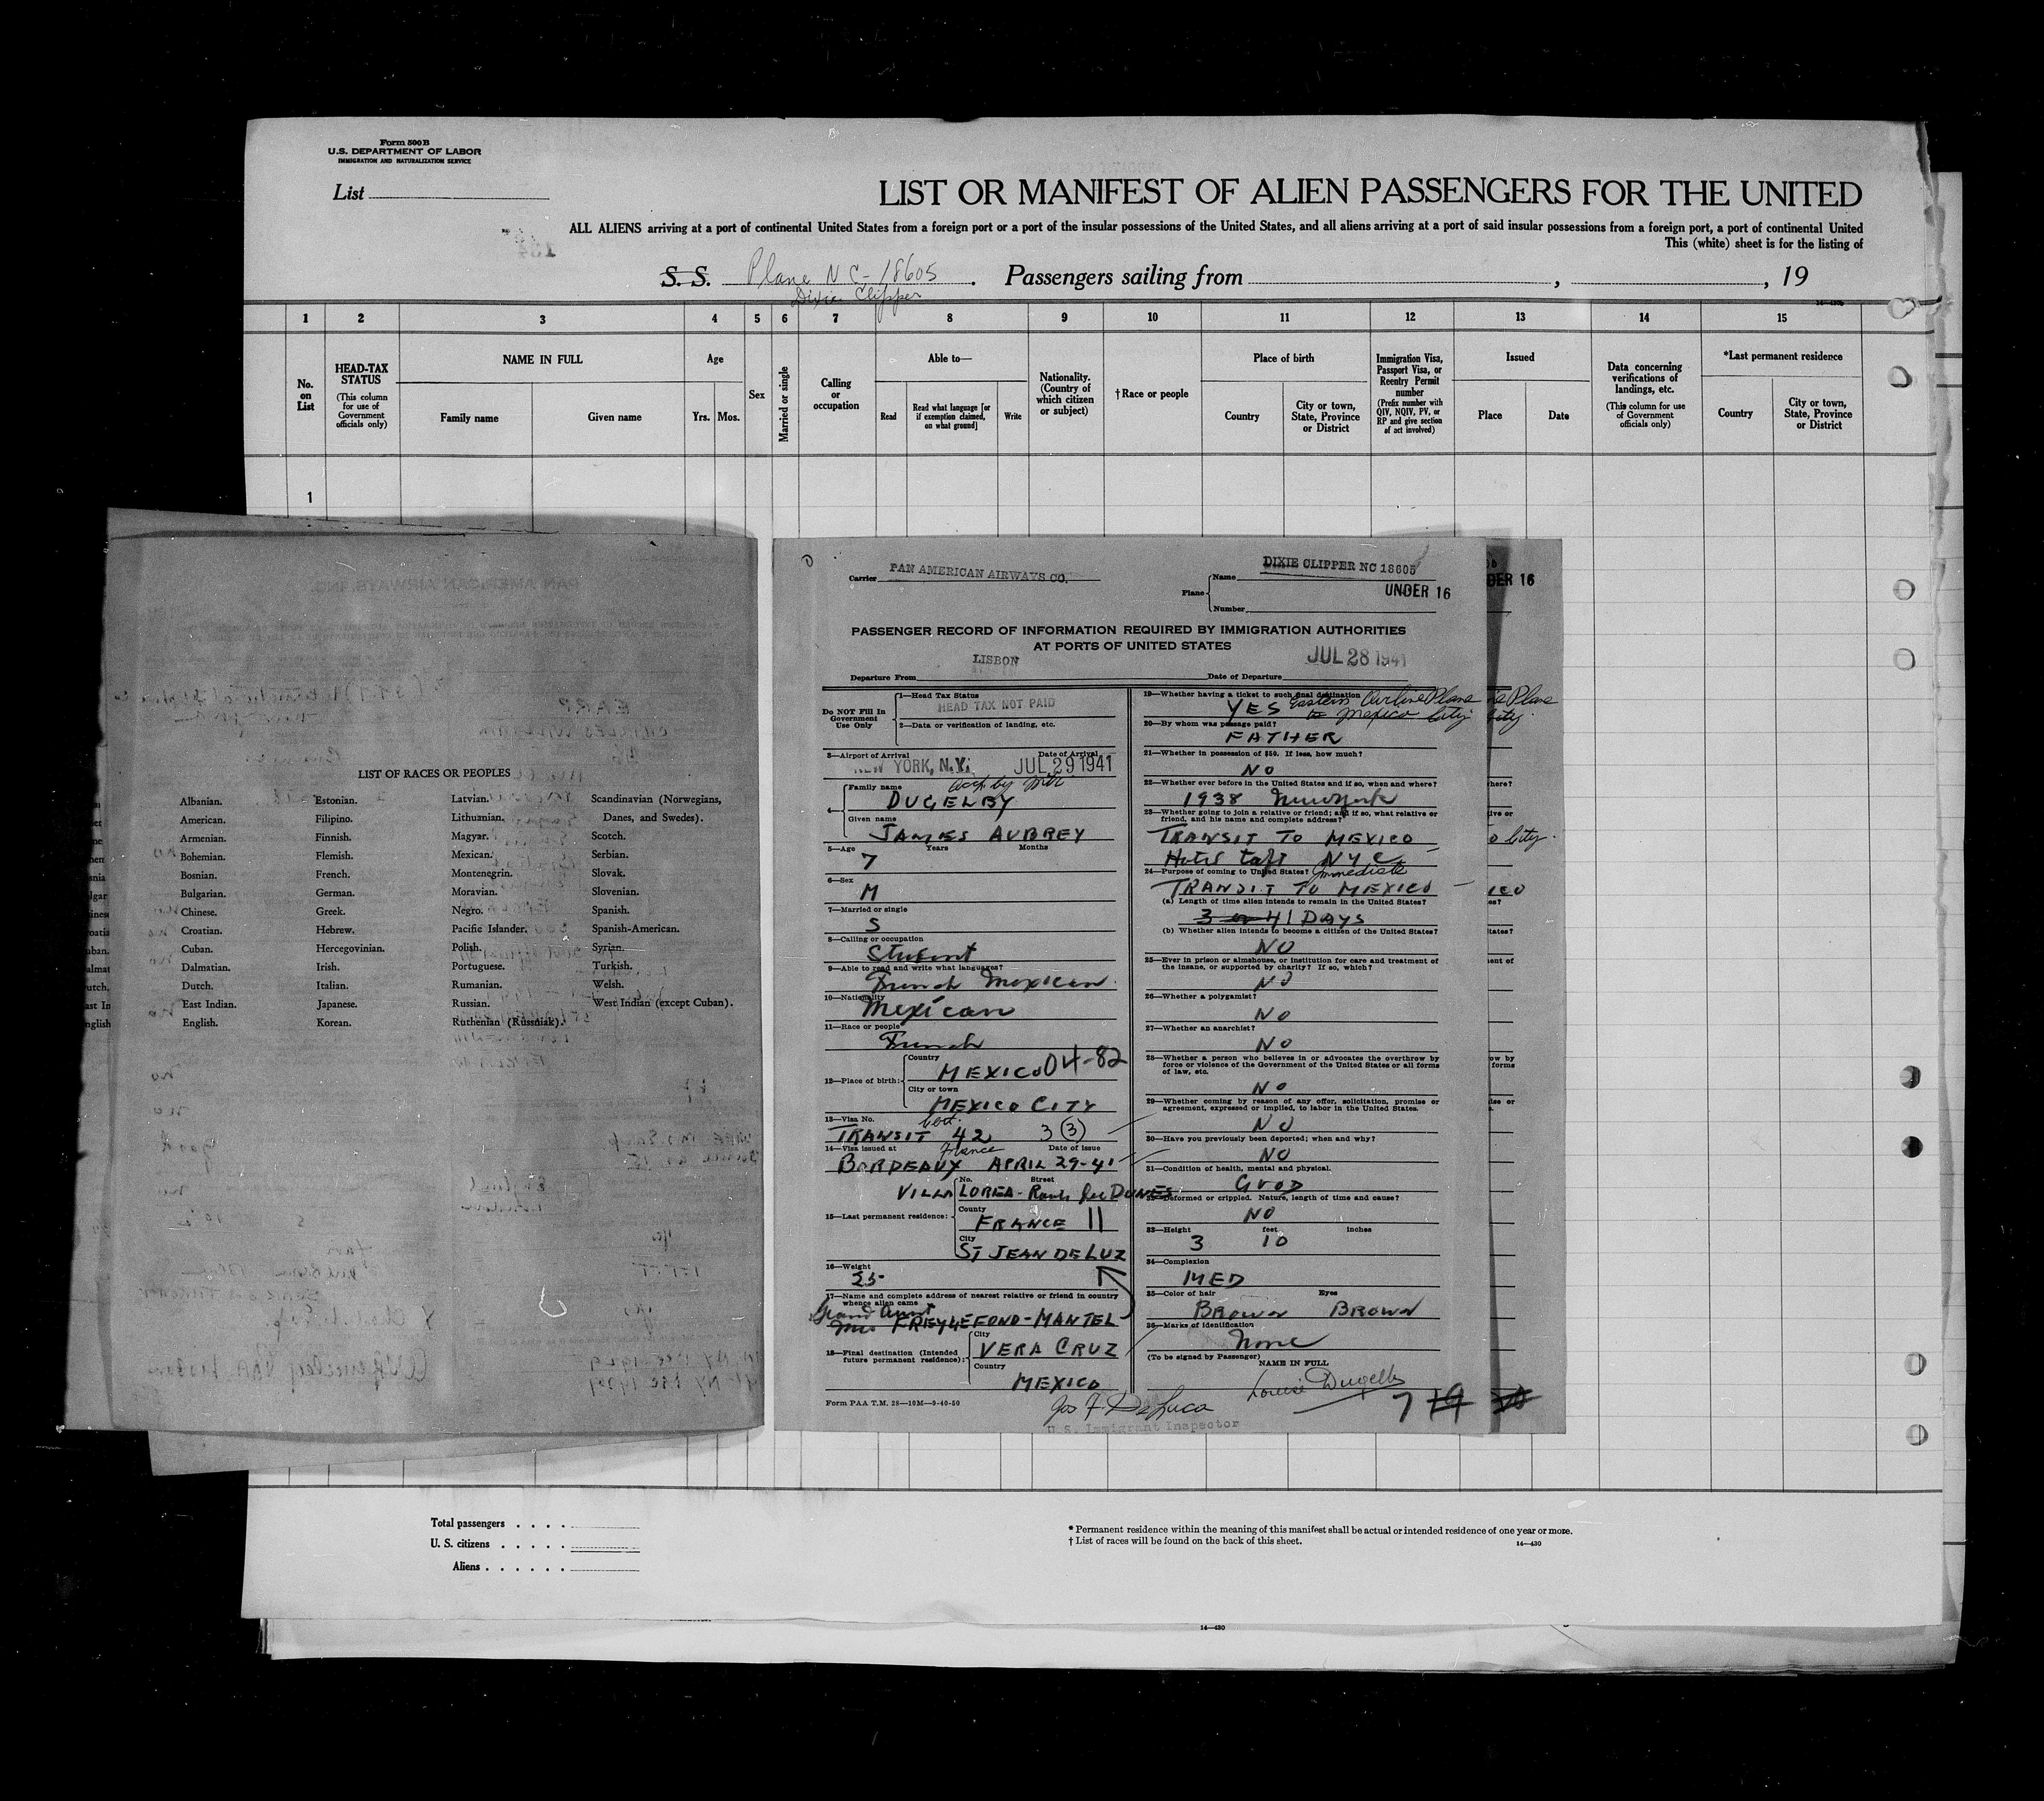 Form 500 B
U.S. DEPARTMENT OF LABOR
IMMIGRATION AND NATURALIZATION SERVICE
List
LIST OR MANIFEST OF ALIEN PASSENGERS FOR THE UNITED
ALL ALIENS arriving at a port of continental United States from a foreign port or a port of the insular possessions of the United States, and all aliens arriving at a port of said insular possessions from a foreign port, a port of continental United
This (white) sheet is for the listing of
S. S. Plane NC-18605. Passengers sailing from , , 19
Dixie Clipper
1 2 3 4 5 6 7 8 9 10 11 12 13 14 15
No. on List
HEAD-TAX STATUS
(This column for use of Government officials only)
NAME IN FULL
Family name
Given name
Age
Yrs. Mos.
Sex
Married or single
Calling or occupation
Able to—
Read
Read what language [or if exemption claimed, on what ground]
Write
Nationality. (Country of which citizen or subject)
†Race or people
Place of birth
Country
City or town, State, Province or District
Immigration Visa, Passport Visa, or Reentry Permit number
(Prefix number with QIV, NQIV, PV, or RP and give section of act involved)
Issued
Place
Date
Data concerning verifications of landings, etc.
(This column for use of Government officials only)
*Last permanent residence
Country
City or town, State, Province or District
1
LIST OF RACES OR PEOPLES
Albanian. Estonian. Latvian. Scandinavian (Norwegians,
American. Filipino. Lithuanian. Danes, and Swedes).
Armenian. Finnish. Magyar. Scotch.
Bohemian. Flemish. Mexican. Serbian.
Bosnian. French. Montenegrin. Slovak.
Bulgarian. German. Moravian. Slovenian.
Chinese. Greek. Negro. Spanish.
Croatian. Hebrew. Pacific Islander. Spanish-American.
Cuban. Hercegovinian. Polish. Syrian.
Dalmatian. Irish. Portuguese. Turkish.
Dutch. Italian. Rumanian. Welsh.
East Indian. Japanese. Russian. West Indian (except Cuban).
English. Korean. Ruthenian (Russniak).
Carrier PAN AMERICAN AIRWAYS CO.
Plane Name DIXIE CLIPPER NC 18605
UNDER 16
Number
PASSENGER RECORD OF INFORMATION REQUIRED BY IMMIGRATION AUTHORITIES
AT PORTS OF UNITED STATES
Departure From LISBON Date of Departure JUL 28 1941
Do NOT Fill In Government Use Only
1—Head Tax Status
HEAD TAX NOT PAID
2—Data or verification of landing, etc.
3—Airport of Arrival Date of Arrival
NEW YORK, N.Y. JUL 29 1941
4— Family name
DUGELBY
Given name
JAMES AUBREY
5—Age Years Months
7
6—Sex
M
7—Married or single
S
8—Calling or occupation
Student
9—Able to read and write what languages?
French Mexican
10—Nationality
Mexican
11—Race or people
French
12—Place of birth: Country
MEXICO 04-82
City or town
MEXICO CITY
13—Visa No.
TRANSIT 42 3 (3)
14—Visa issued at France Date of issue
BORDEAUX APRIL 29-41
15—Last permanent residence: No. Street
VILLA LOREA- Route des DUNES
County
FRANCE 11
City
ST JEAN DE LUZ
16—Weight
55
17—Name and complete address of nearest relative or friend in country whence alien came
Grand Aunt
Mrs FREYLEFOND-MANTEL
18—Final destination (Intended future permanent residence): City
VERA CRUZ
Country
MEXICO
Form PAA T.M. 28—10M—9-40-50
19—Whether having a ticket to such final destination
YES Eastern Airline Plane
to Mexico City
20—By whom was passage paid?
FATHER
21—Whether in possession of $50. If less, how much?
NO
22—Whether ever before in the United States and if so, when and where?
1938 New York
23—Whether going to join a relative or friend; and if so, what relative or friend, and his name and complete address?
TRANSIT TO MEXICO
Hotel Taft NYC
24—Purpose of coming to United States? Immediate
TRANSIT TO MEXICO
(a) Length of time alien intends to remain in the United States?
3 or 4 1 DAYS
(b) Whether alien intends to become a citizen of the United States?
NO
25—Ever in prison or almshouse, or institution for care and treatment of the insane, or supported by charity? If so, which?
NO
26—Whether a polygamist?
NO
27—Whether an anarchist?
NO
28—Whether a person who believes in or advocates the overthrow by force or violence of the Government of the United States or all forms of law, etc.
NO
29—Whether coming by reason of any offer, solicitation, promise or agreement, expressed or implied, to labor in the United States.
NO
30—Have you previously been deported; when and why?
NO
31—Condition of health, mental and physical.
GOOD
32—Deformed or crippled. Nature, length of time and cause?
NO
33—Height feet inches
3 10
34—Complexion
MED
35—Color of hair Eyes
BROWN BROWN
36—Marks of identification
None
(To be signed by Passenger)
NAME IN FULL
Louise Dugelby
Jos F DeLuca
U.S. Immigrant Inspector
7 19 20
Total passengers
U. S. citizens
Aliens
* Permanent residence within the meaning of this manifest shall be actual or intended residence of one year or more.
† List of races will be found on the back of this sheet.
14—430
14—430